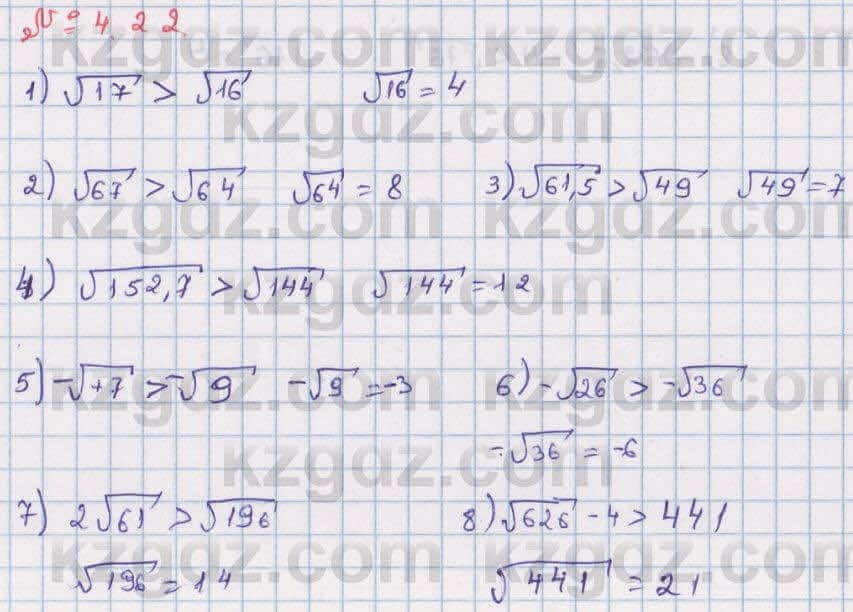 № 4. 2 2.
1) √17 > √16 √16 = 4
2) √67 > √64 √64 = 8 3) √61,5 > √49 √49 = 7
4) √152,7 > √144 √144 = 12
5) -√+7 > -√9 -√9 = -3 6) -√26 > -√36
-√36 = -6
7) 2√61 > √196 8) √626 - 4 > 441
√196 = 14 √441 = 21
kzgdz.com